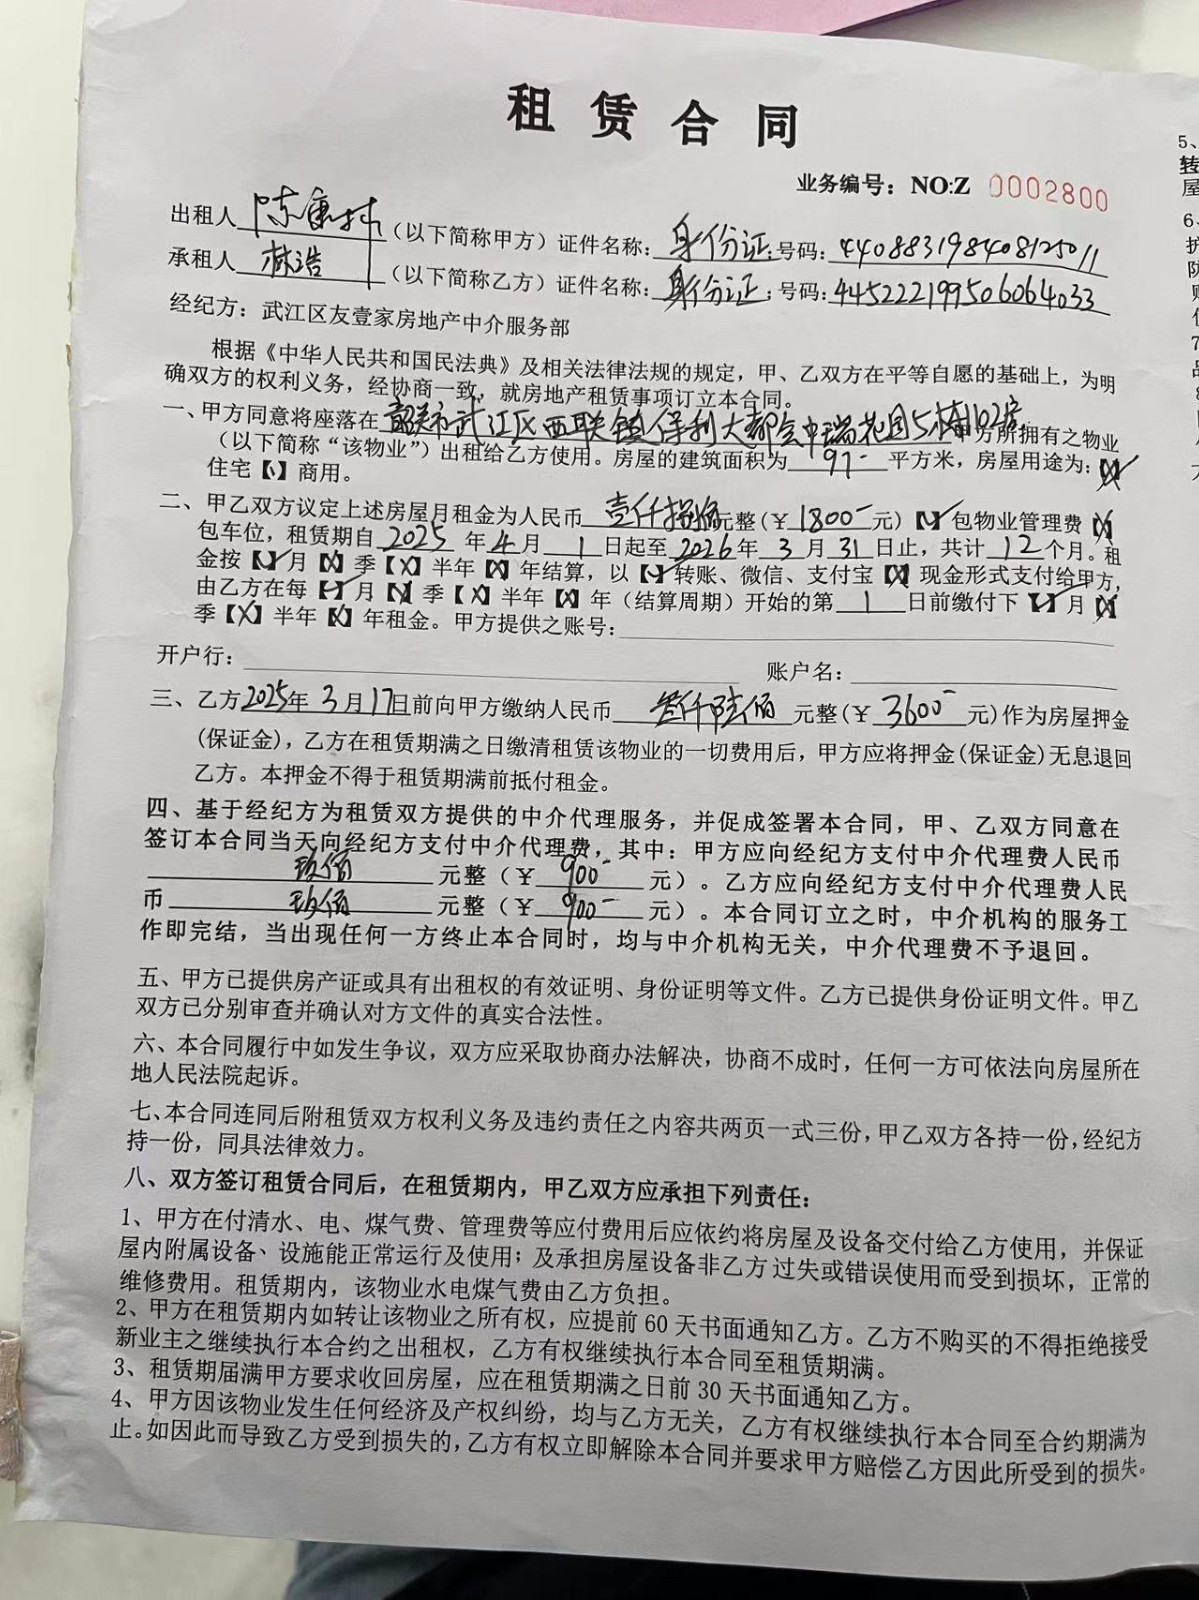 租赁合同
业务编号：NO:Z 0002800
出租人 陈康 （以下简称甲方）证件名称：身份证；号码：440883198408125011
承租人 林浩 （以下简称乙方）证件名称：身份证；号码：445222199506064033
经纪方：武江区友壹家房地产中介服务部
根据《中华人民共和国民法典》及相关法律法规的规定，甲、乙双方在平等自愿的基础上，为明
确双方的权利义务，经协商一致，就房地产租赁事项订立本合同。
一、甲方同意将座落在 韶关市武江区西联镇保利大都会中瑞花园5栋1102房 方所拥有之物业
（以下简称“该物业”）出租给乙方使用。房屋的建筑面积为 97- 平方米，房屋用途为：【】
住宅【\】商用。
二、甲乙双方议定上述房屋月租金为人民币 壹仟捌佰元整(￥ 1800- 元)【✓】包物业管理费【X】
包车位，租赁期自 2025 年 4 月 1 日起至 2026 年 3 月 31 日止，共计 12 个月。租
金按【✓】月【X】季【X】半年【X】年结算，以【✓】转账、微信、支付宝【X】现金形式支付给甲方，
由乙方在每【✓】月【X】季【X】半年【X】年（结算周期）开始的第 1 日前缴付下【✓】月【X】
季【X】半年【X】年租金。甲方提供之账号：
开户行： 账户名：
三、乙方2025年 3 月 17日前向甲方缴纳人民币 叁仟陆佰 元整(￥ 3600- 元)作为房屋押金
(保证金)，乙方在租赁期满之日缴清租赁该物业的一切费用后，甲方应将押金(保证金)无息退回
乙方。本押金不得于租赁期满前抵付租金。
四、基于经纪方为租赁双方提供的中介代理服务，并促成签署本合同，甲、乙双方同意在
签订本合同当天向经纪方支付中介代理费，其中：甲方应向经纪方支付中介代理费人民币
玖佰 元整（￥ 900- 元）。乙方应向经纪方支付中介代理费人民
币 玖佰 元整（￥ 900- 元）。本合同订立之时，中介机构的服务工
作即完结，当出现任何一方终止本合同时，均与中介机构无关，中介代理费不予退回。
五、甲方已提供房产证或具有出租权的有效证明、身份证明等文件。乙方已提供身份证明文件。甲乙
双方已分别审查并确认对方文件的真实合法性。
六、本合同履行中如发生争议，双方应采取协商办法解决，协商不成时，任何一方可依法向房屋所在
地人民法院起诉。
七、本合同连同后附租赁双方权利义务及违约责任之内容共两页一式三份，甲乙双方各持一份，经纪方
持一份，同具法律效力。
八、双方签订租赁合同后，在租赁期内，甲乙双方应承担下列责任：
1、甲方在付清水、电、煤气费、管理费等应付费用后应依约将房屋及设备交付给乙方使用，并保证
屋内附属设备、设施能正常运行及使用；及承担房屋设备非乙方过失或错误使用而受到损坏，正常的
维修费用。租赁期内，该物业水电煤气费由乙方负担。
2、甲方在租赁期内如转让该物业之所有权，应提前60天书面通知乙方。乙方不购买的不得拒绝接受
新业主之继续执行本合约之出租权，乙方有权继续执行本合同至租赁期满。
3、租赁期届满甲方要求收回房屋，应在租赁期满之日前30天书面通知乙方。
4、甲方因该物业发生任何经济及产权纠纷，均与乙方无关，乙方有权继续执行本合同至合约期满为
止。如因此而导致乙方受到损失的，乙方有权立即解除本合同并要求甲方赔偿乙方因此所受到的损失。
5、
转
屋
6、